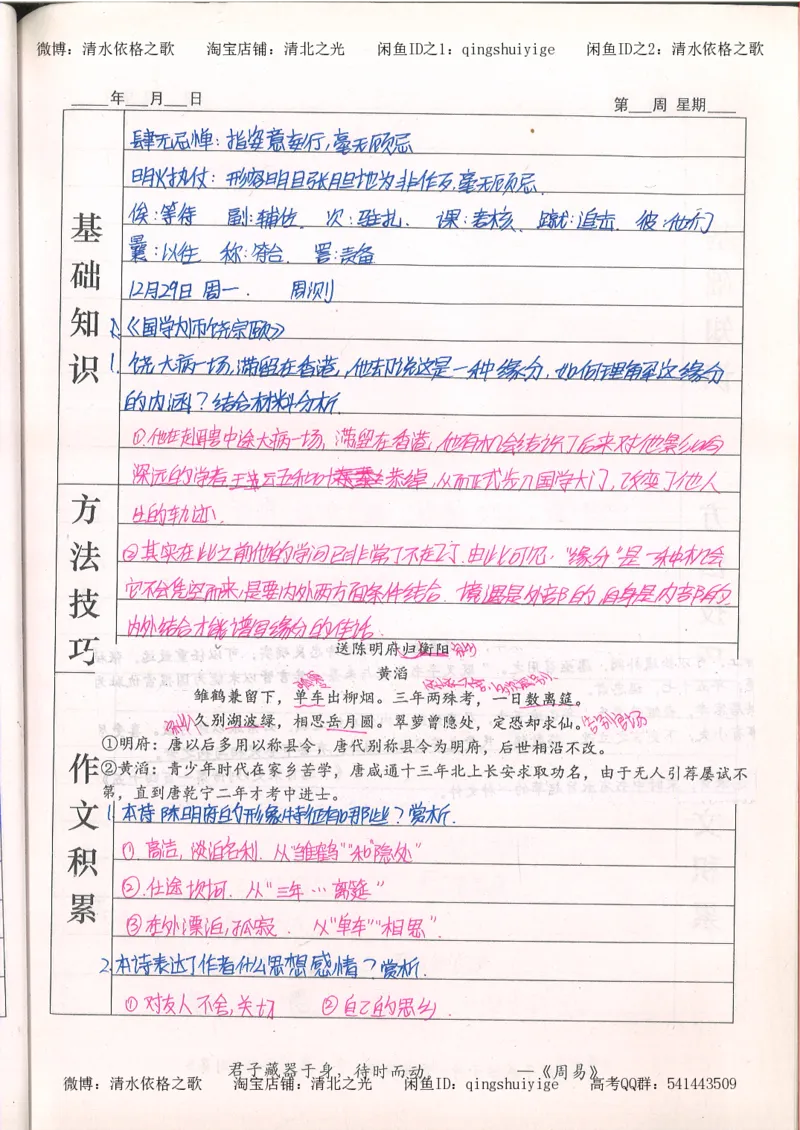 微博：清水依格之歌 淘宝店铺：清北之光 闲鱼ID之1：qingshuiyige 闲鱼ID之2：清水依格之歌
年 月 日 第 周 星期
基础知识
肆无忌惮：指姿意妄行，毫无顾忌
明火执仗：形容明目张胆地为非作歹，毫无顾忌.
俟：等待 副：辅佐 次：驻扎、 课：考核、 蹴：追击. 彼：他们
曩：以往 称：符合. 署：责备
12月29日 周一. 周测
2.《国学大师饶宗颐》
1. 饶大病一场，滞留在香港，他却说这是一种缘分，如何理解这缘分
的内涵？结合材料分析.
①.他在赴聘中途大病一场，滞留在香港，他有机会结识了后来对他影响
深远的学者王云五和叶恭绰，从而正式步入国学大门，改变了他人
生的轨迹.
方法技巧
②其实在此之前他的学问已非常了不起了.由此可见，“缘分”是一种机会
它不会凭空而来，是要内外两方面条件结合. 境遇是外部的，自身是内部的
内外结合才能谱写缘分的佳话.
送陈明府归衡阳
黄滔
雏鹤兼留下，单车出柳烟。三年两殊考，一日数离筵。
久别湖波绿，相思岳月圆。翠萝曾隐处，定恐却求仙。
①明府：唐以后多用以称县令，唐代别称县令为明府，后世相沿不改。
②黄滔：青少年时代在家乡苦学，唐咸通十三年北上长安求取功名，由于无人引荐屡试不
第，直到唐乾宁二年才考中进士。
作文积累
1.本诗陈明府的形象特征有哪些？赏析.
①.高洁，淡泊名利. 从“雏鹤”和“隐处”
②.仕途坎坷. 从“三年…离筵”
③在外漂泊，孤寂. 从“单车”“相思”.
2.本诗表达了作者什么思想感情？赏析.
①对友人不舍，关切 ②自己的思乡.
君子藏器于身，待时而动。 —《周易》
微博：清水依格之歌 淘宝店铺：清北之光 闲鱼ID：qingshuiyige 高考QQ群：541443509